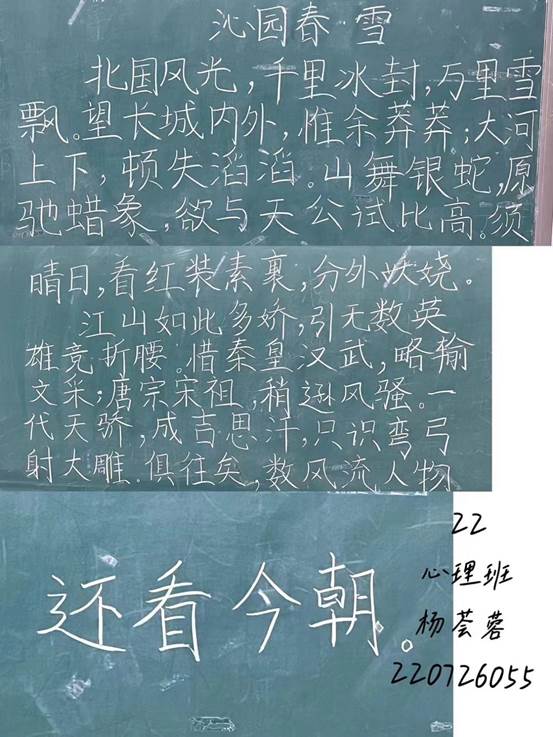 沁园春·雪
北国风光,千里冰封,万里雪
飘。望长城内外,惟余莽莽;大河
上下,顿失滔滔。山舞银蛇,原
驰蜡象,欲与天公试比高。须
晴日,看红装素裹,分外妖娆。
江山如此多娇,引无数英
雄竞折腰。惜秦皇汉武,略输
文采;唐宗宋祖,稍逊风骚。一
代天骄,成吉思汗,只识弯弓
射大雕.俱往矣,数风流人物
还看今朝。
22
心理班
杨荟蓉
220726055